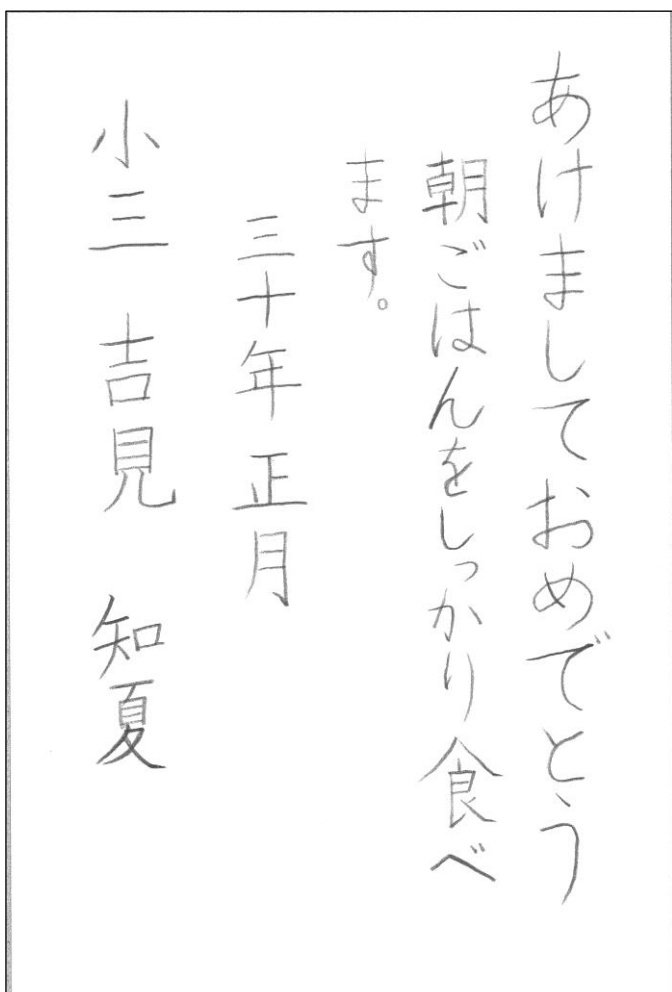 あけましておめでとう
朝ごはんをしっかり食べ
ます。
三十年 正月
小三 吉見 知夏